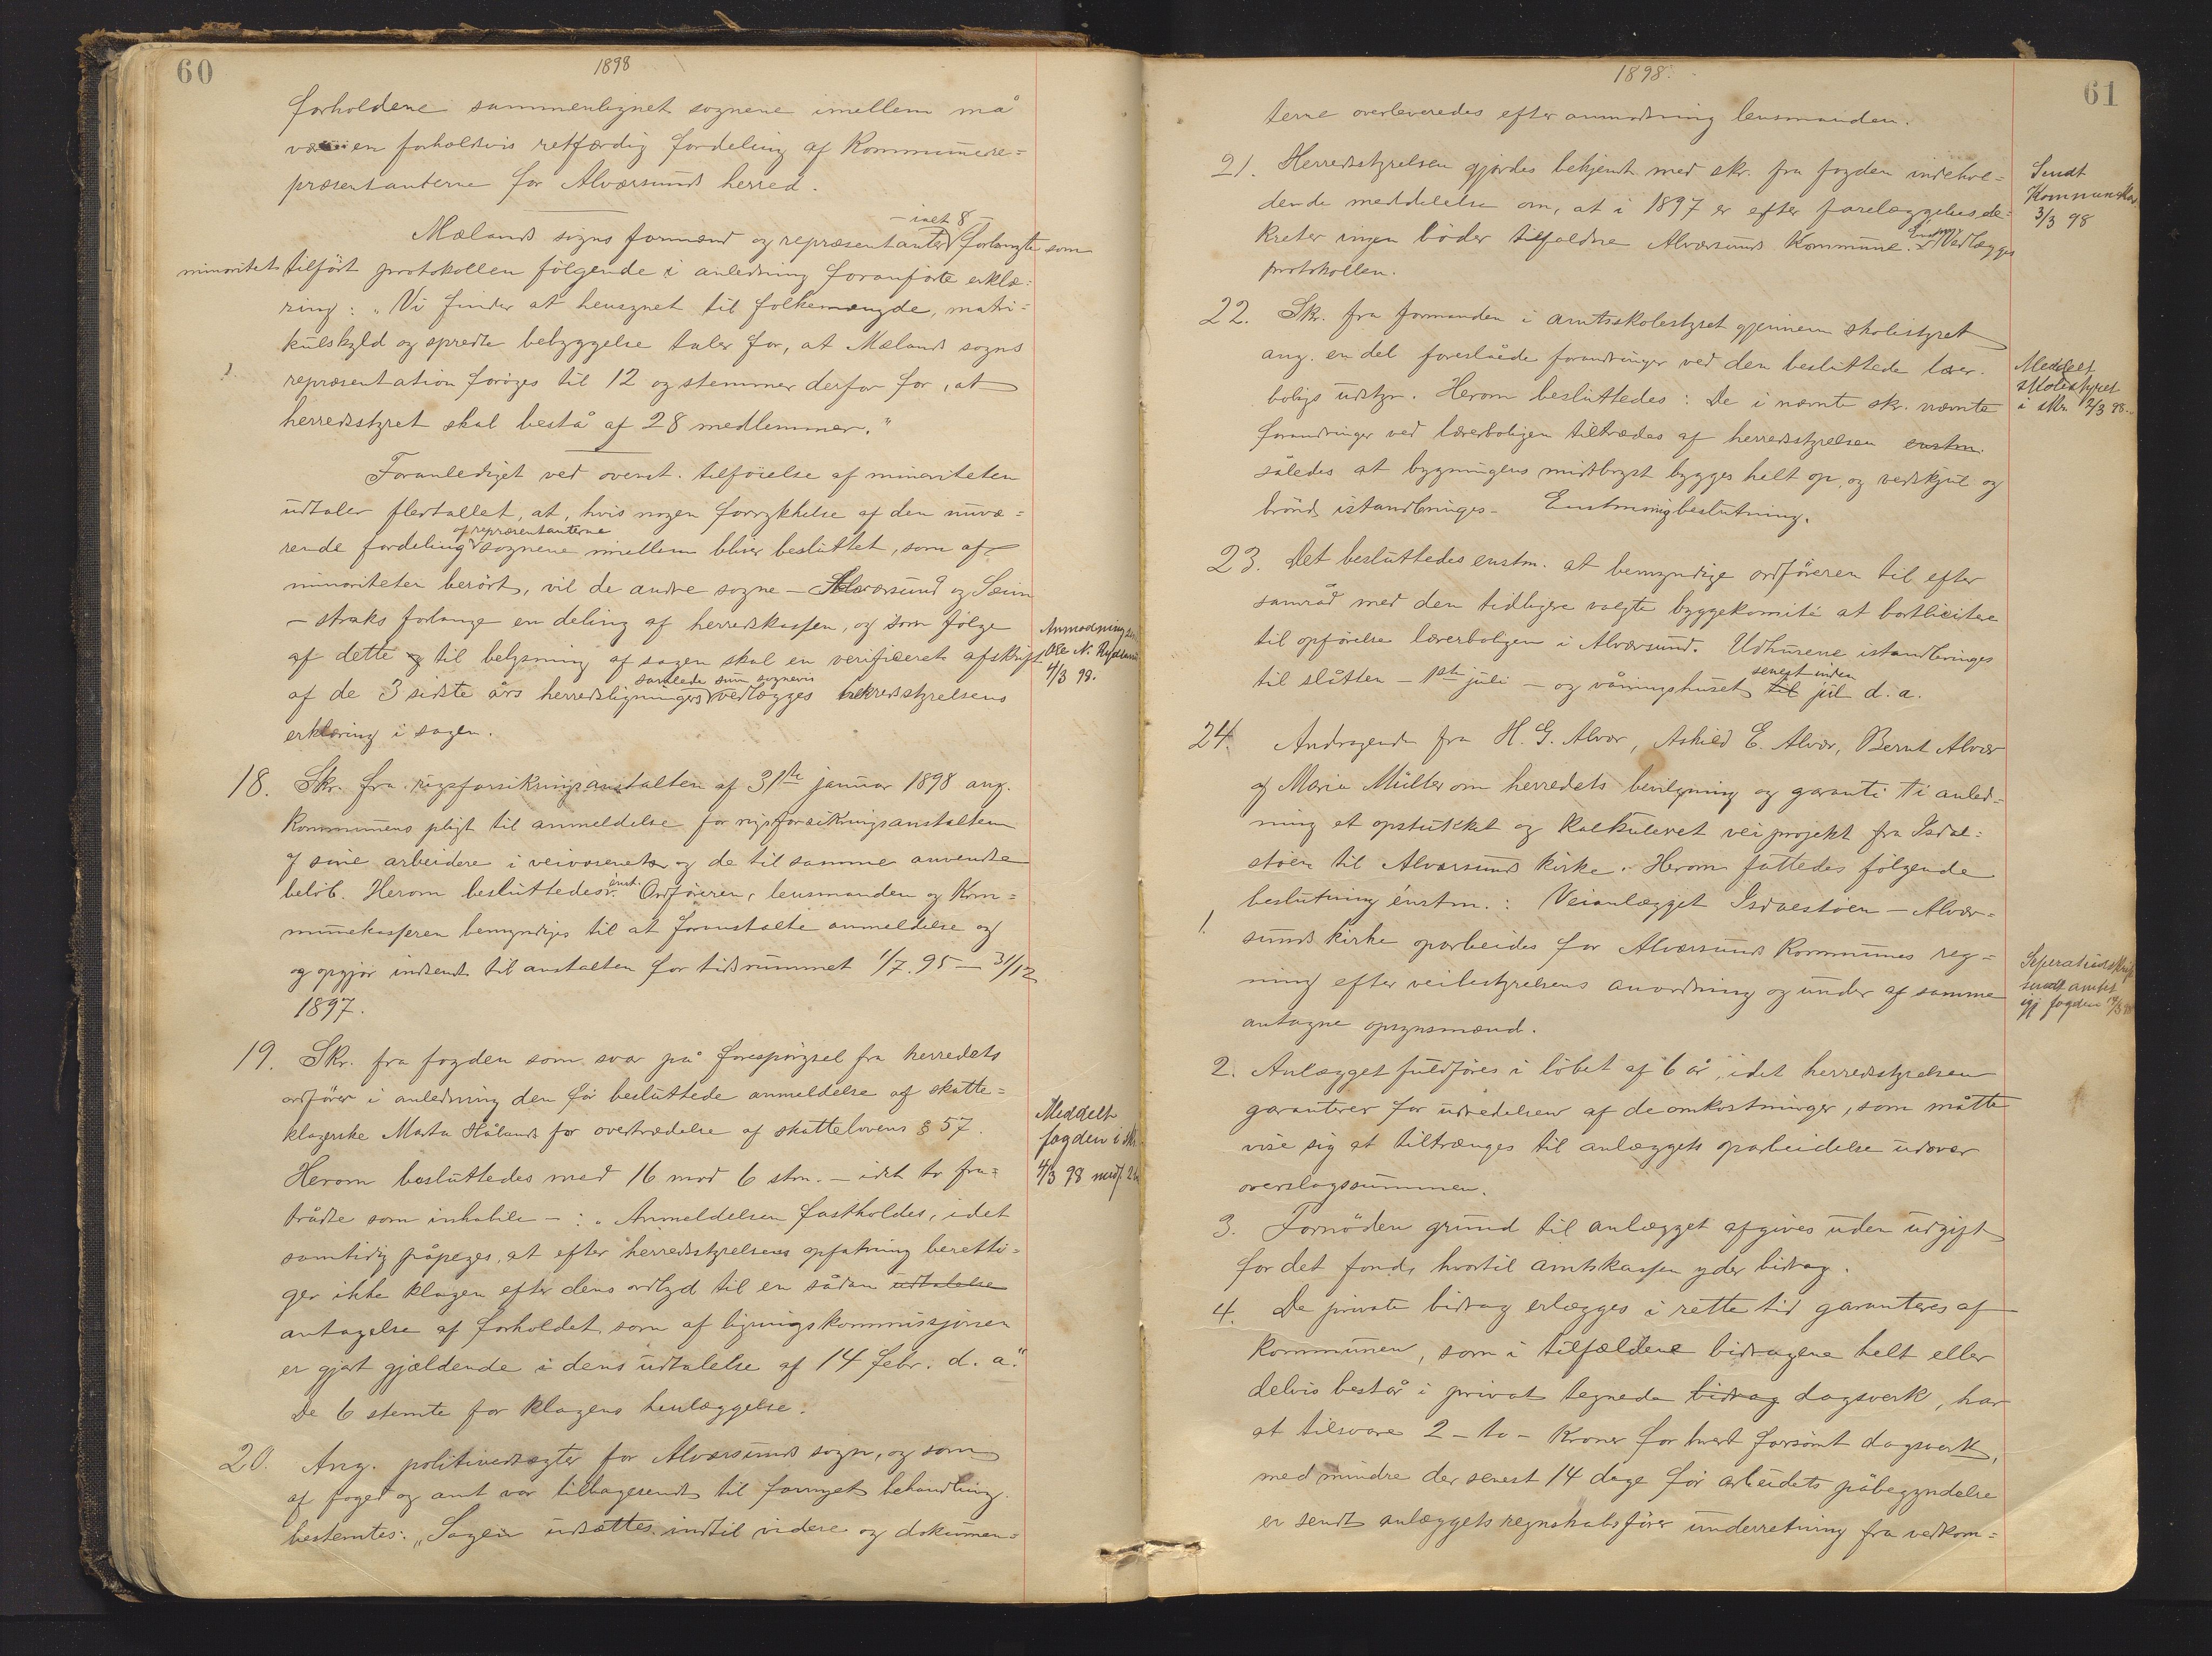 60
1898
forholdene sammenlignet sognene imellem må
være en forholdsvis retfærdig fordeling af kommunere=
præsentanterne for Alværsunds herred.
– ialt 8 –
Mælands sogns formænd og repræsentanter forlangte som
minoritet tilført protokollen følgende i anledning foranførte erklæ=
ring: „Vi finder at hensynet til folkemængde, matri=
kulskyld og spredte bebyggelse taler for, at Mælands sogns
repræsentation forøges til 12 og stemmer derfor for, at
herredsstyret skal bestå af 28 medlemmer."
Foranlediget ved ovenst. tilføielse af minoriteten
udtaler flertallet, at, hvis nogen forrykkelse af den nuvæ=
af repræsentanterne
rende fordeling sognene imellem bliver besluttet, som af
minoriteten berørt, vil de andre sogne – Alværsund og Seim
– straks forlange en deling af herredskassen, og som følge
af dette og til belysning af sagen skal en verificeret afskrift
samlede sum sognevis
af de 3 sidste års herredsligninger vedlægges herredsstyrelsens
erklæring i sagen.
Anmodning
Ole N.
4/3 98.
18. Skr. fra rigsforsikringsanstalten af 31te januar 1898 ang.
kommunens pligt til anmeldelse for rigsforsikringsanstalten
af sine arbeidere i veivæsenet og de til samme anvendte
enst.
beløb. Herom besluttedes: Ordføreren, lensmanden og kom=
munekasseren bemyndiges til at foranstalte anmeldelse og
og opgjør indsendt til anstalten for tidsrummet 1/7. 95 – 31/12
1897.
19. Skr. fra fogden som svar på forespørgsel fra herredets
ordfører i anledning den før besluttede anmeldelse af skatte=
klagerske Marta Håland for overtrædelse af skattelovens § 57.
Herom besluttedes med 16 mod 6 stm. – idet to fra=
trådte som inhabile – : „Anmeldelsen fastholdes, idet
samtidig påpeges, at efter herredsstyrelsens opfatning beretti=
ger ikke klagen efter dens ordlyd til en sådan udtalelse
antagelse af forholdet, som af ligningskommissjonen
er gjort gjældende i dens udtalelse af 14 febr. d. a."
De 6 stemte for klagens henlæggelse.
Meddelt
fogden i skr.
4/3 98
20. Ang. politivedtægter for Alværsunds sogn, og som
af foged og amt var tilbagesendt til fornyet behandling.
bestemtes: „Sagen udsættes indtil videre og dokumen=
1898.
61
terne overleveredes efter anmodning lensmanden.
21. Herredsstyrelsen gjordes bekjendt med skr. fra fogden indehol=
dende meddelelse om, at i 1897 er efter forelæggelsesde=
kreter ingen bøder tilfaldne Alværsunds kommune. Vedlægges
protokollen.
Sendt
3/3 98
22. Skr. fra formanden i amtsskolestyret gjennem skolestyret
ang. en del foreslåede forandringer ved den besluttede lærer=
boligs udstyr. Herom besluttedes: De i nævnte skr. nævnte
forandringer ved lærerboligen tiltrædes af herredsstyrelsen enstm.
således at bygningens midtbryst bygges helt op, og vedskjul og
brønd istandbringes – Enstemmig beslutning.
Meddelt
skolestyret
i skr. 2/3 98.
23. Det besluttedes enstm. at bemyndige ordføreren til efter
samråd med den tidligere valgte byggekomite at bortlicitere
til opførelse lærerboligen i Alværsund. Udhusene istandbringes
senest inden
til slåtten – 1ste juli – og våningshuset til jul d. a.
24. Andragende fra H. G. Alvær, Askild E. Alvær, Bernt Alvær
og Maria Müller om herredets bevilgning og garanti ti anled=
ning et opstukket og kalkuleret veiprojekt fra Isdal=
støen til Alværsunds kirke. Herom fattedes følgende
beslutning enstm.: Veianlægget Isdalstøen – Alvær=
1. sunds kirke oparbeides for Alværsunds kommunes reg=
ning efter veibestyrelsens anordning og under af samme
antagne opsynsmænd.
sendt amtet
gj fogden
2. Anlægget fuldføres i løbet af 6 år, idet herredsstyrelsen
garanterer for udredelsen af de omkostninger, som måtte
vise sig at tiltrænges til anlæggets oparbeidelse udover
overslagssummen.
3. Fornøden grund til anlægget afgives uden udgift
for det fond, hvortil amtskassen yder bidrag.
4. De private bidrag erlægges i rette tid garanteres af
kommunen, som i tilfældene bidragene helt eller
delvis består i privat tegnede bidrag dagsverk, har
at tilsvare 2 – to – kroner for hvert forsømt dagsverk,
med mindre der senest 14 dage før arbeidets påbegyndelse
er sendt anlæggets regnskabsfører underretning fra vedkom=